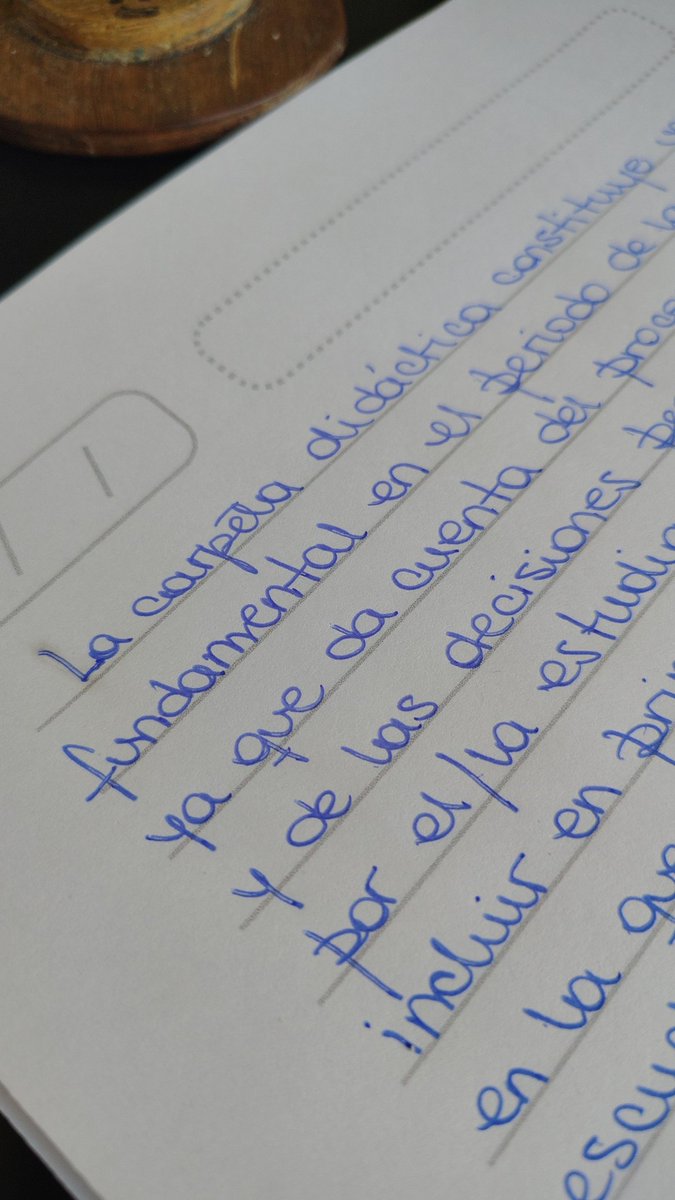 La carpeta didáctica constituye
fundamental en el periodo de la
ya que da cuenta del
y de las decisiones
por el/la
incluir en
en la